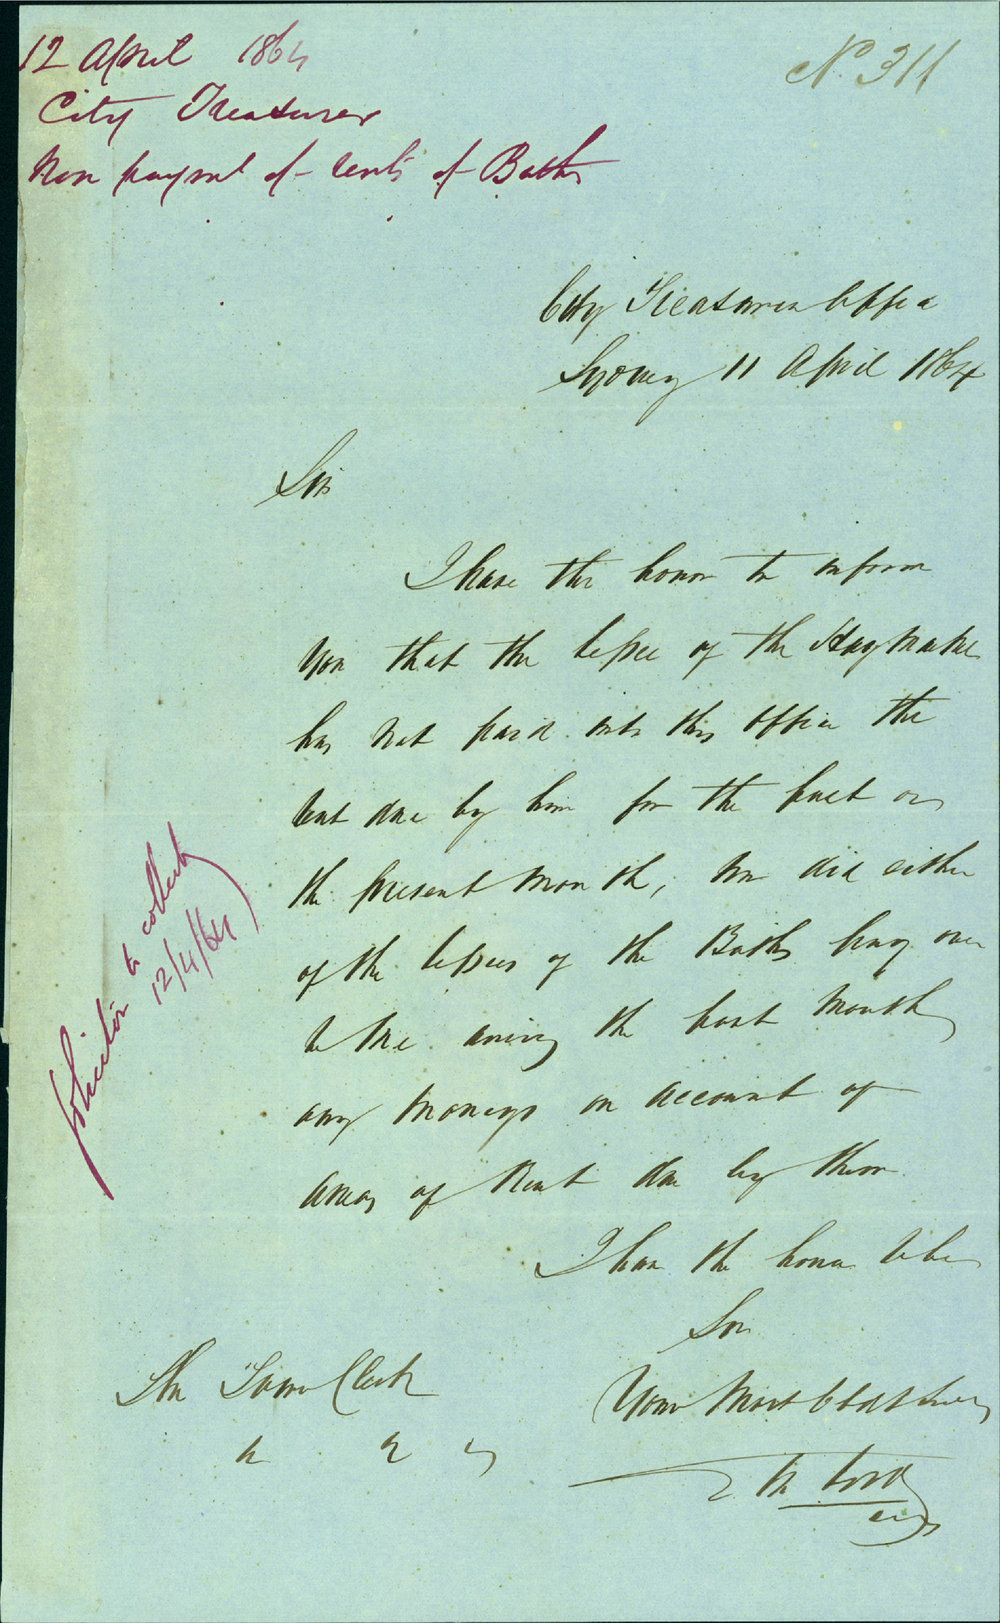 12 April 1864
City Treasurer
Non paymt of rents of Baths
No 311
City Treasurers Office
Sydney 11 April 1864
Sir
I have the honor to inform
you that the lessee of the Haymarket
has not paid into this office the
rent due by him for the past or
the present month, nor did either
of the lessees of the Baths pay over
to me during the past month
any moneys on account of
arrears of rent due by them
I have the honor to be
Sir
Your Most Obdt Servt
The Town Clerk
Solicitor to collect
12/4/64